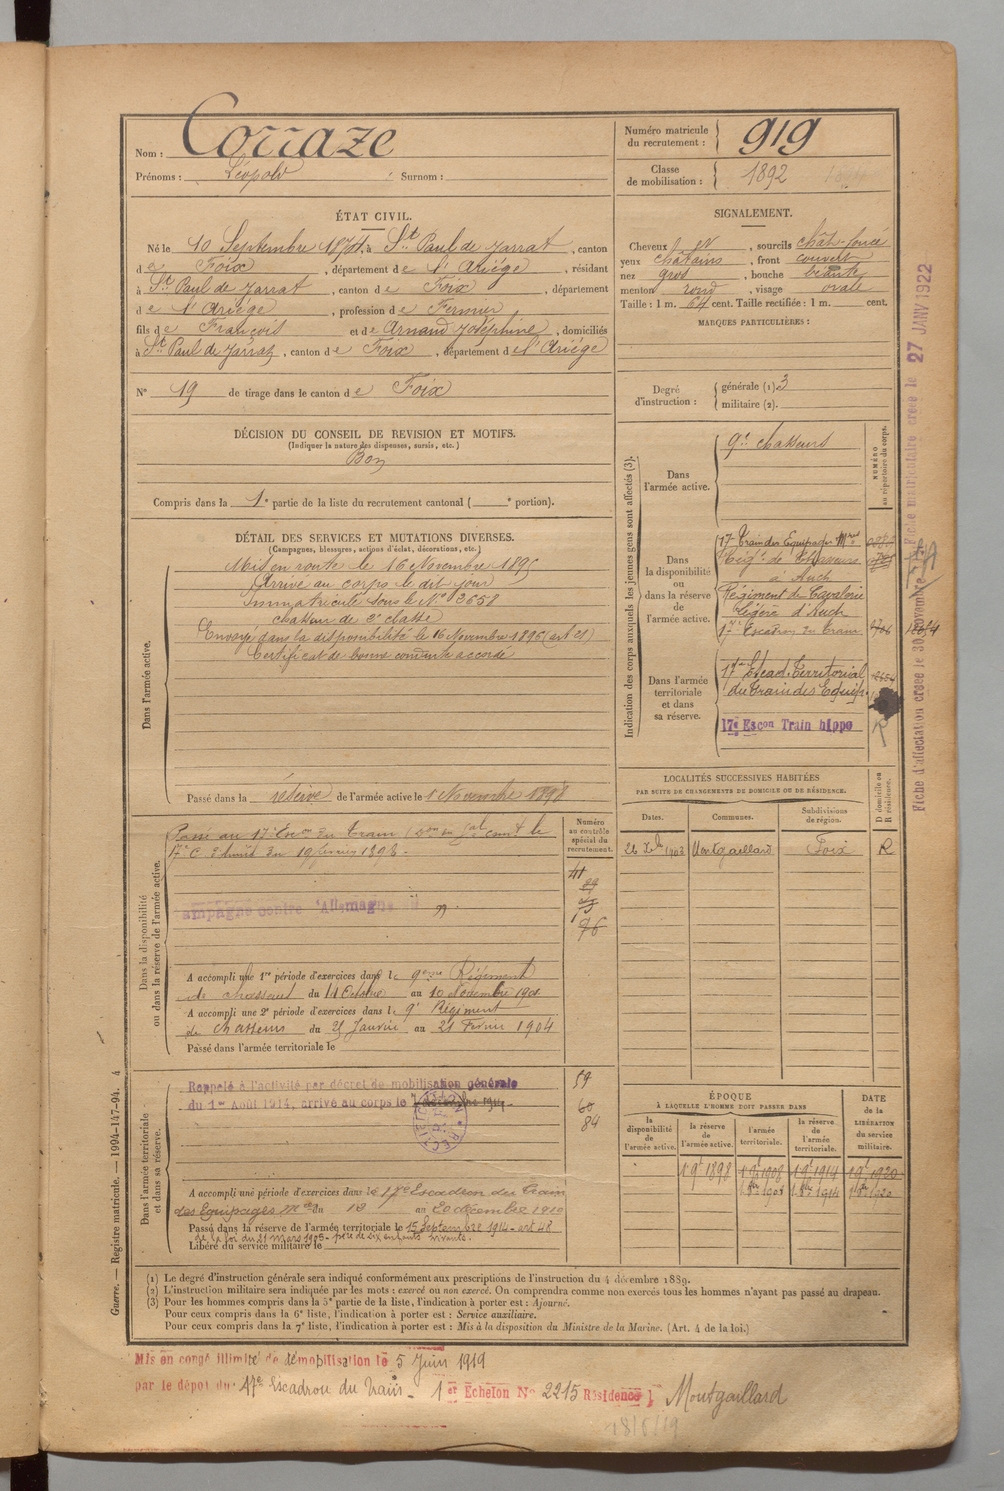 Nom : Corraze
Prénoms : Léopold Surnom :
Numéro matricule du recrutement : 919
Classe de mobilisation : 1892
ÉTAT CIVIL.
Né le 10 Septembre 1874, à St Paul de Jarrat, canton
de Foix, département de l'Ariége, résidant
à St Paul de Jarrat, canton de Foix, département
de l'Ariége, profession de Fermier
fils de François et de Arnaud Joséphine, domiciliés
à St Paul de Jarrat, canton de Foix, département de l'Ariége
N° 19 de tirage dans le canton de Foix
SIGNALEMENT.
Cheveux , sourcils chât. foncé
yeux châtains, front couvert
nez gros, bouche béante
menton rond, visage ovale
Taille : 1 m. 64 cent. Taille rectifiée : 1 m. cent.
MARQUES PARTICULIÈRES :
Degré d'instruction : générale (1). 3
militaire (2).
DÉCISION DU CONSEIL DE REVISION ET MOTIFS.
(Indiquer la nature des dispenses, sursis, etc.)
Bon
Compris dans la 1e partie de la liste du recrutement cantonal ( e portion).
DÉTAIL DES SERVICES ET MUTATIONS DIVERSES.
(Campagnes, blessures, actions d'éclat, décorations, etc.)
Dans l'armée active.
Mis en route le 16 Novembre 1895
Arrivé au corps le dit jour
Immatriculé sous le N° 3658
chasseur de 2e classe
Envoyé dans la disponibilité le 16 Novembre 1896 (art 21)
Certificat de bonne conduite accordé
Passé dans la réserve de l'armée active le 1 Novembre 1898
Indication des corps auxquels les jeunes gens sont affectés (3).
NUMÉRO au répertoire du corps.
Dans l'armée active.
9e chasseurs
Dans la disponibilité ou dans la réserve de l'armée active.
17e Train des Equipages Mres
Régt de Chasseurs
à Auch
Régiment de Cavalerie
Légère d'Auch
17e Escadron du Train
Dans l'armée territoriale et dans sa réserve.
17e Escad. Territorial
du Train des Equip.
17e Escon Train hippo
LOCALITÉS SUCCESSIVES HABITÉES
PAR SUITE DE CHANGEMENTS DE DOMICILE OU DE RÉSIDENCE.
Dates. Communes. Subdivisions de région. D domicile ou R résidence.
1903 Montgaillard Foix R
Dans la disponibilité ou dans la réserve de l'armée active.
Numéro au contrôle spécial du recrutement.
Passé au 17e Escon du Train
17e C. d'Armée du 19 février 1898.
ampagne contre l'Allemagne
A accompli une 1re période d'exercices dans le 9ème Régiment
de chasseurs du 14 Octobre au 10 Novembre 1901
A accompli une 2e période d'exercices dans le 9e Régiment
de chasseurs du 25 Janvier au 21 Février 1904
Passé dans l'armée territoriale le
Dans l'armée territoriale et dans sa réserve.
Rappelé à l'activité par décret de mobilisation générale
du 1er Août 1914, arrivé au corps le
59
60
84
A accompli une période d'exercices dans le 17e Escadron du Train
des Equipages Mres du 12 au 20 décembre 1910
Passé dans la réserve de l'armée territoriale le 15 Septembre 1914 - art 48
de la loi du 21 mars 1905 - père de six enfants vivants.
Libéré du service militaire le
ÉPOQUE
À LAQUELLE L'HOMME DOIT PASSER DANS
la disponibilité de l'armée active.
la réserve de l'armée active.
l'armée territoriale.
la réserve de l'armée territoriale.
DATE de la LIBÉRATION du service militaire.
1 9e 1898 1 9e 1908 1 9e 1914 1 9e 1920
(1) Le degré d'instruction générale sera indiqué conformément aux prescriptions de l'instruction du 4 décembre 1889.
(2) L'instruction militaire sera indiquée par les mots : exercé ou non exercé. On comprendra comme non exercés tous les hommes n'ayant pas passé au drapeau.
(3) Pour les hommes compris dans la 5e partie de la liste, l'indication à porter est : Ajourné.
Pour ceux compris dans la 6e liste, l'indication à porter est : Service auxiliaire.
Pour ceux compris dans la 7e liste, l'indication à porter est : Mis à la disposition du Ministre de la Marine. (Art. 4 de la loi.)
Guerre. — Registre matricule. — 1994-147-94. 4
Mis en congé illimité de démobilisation le 5 Juin 1919
par le dépôt du 17e Escadron du Train - 1er Echelon N° 2215 Résidence Montgaillard
18/6/19
Fiche matriculaire créée le 27 JANV 1922
Fiche d'affectation créée le 30 novembre